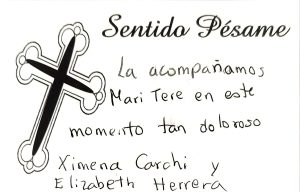 Sentido Pésame
La acompañamos
Mari Tere en este
momento tan doloroso
Ximena Carchi y
Elizabeth Herrera